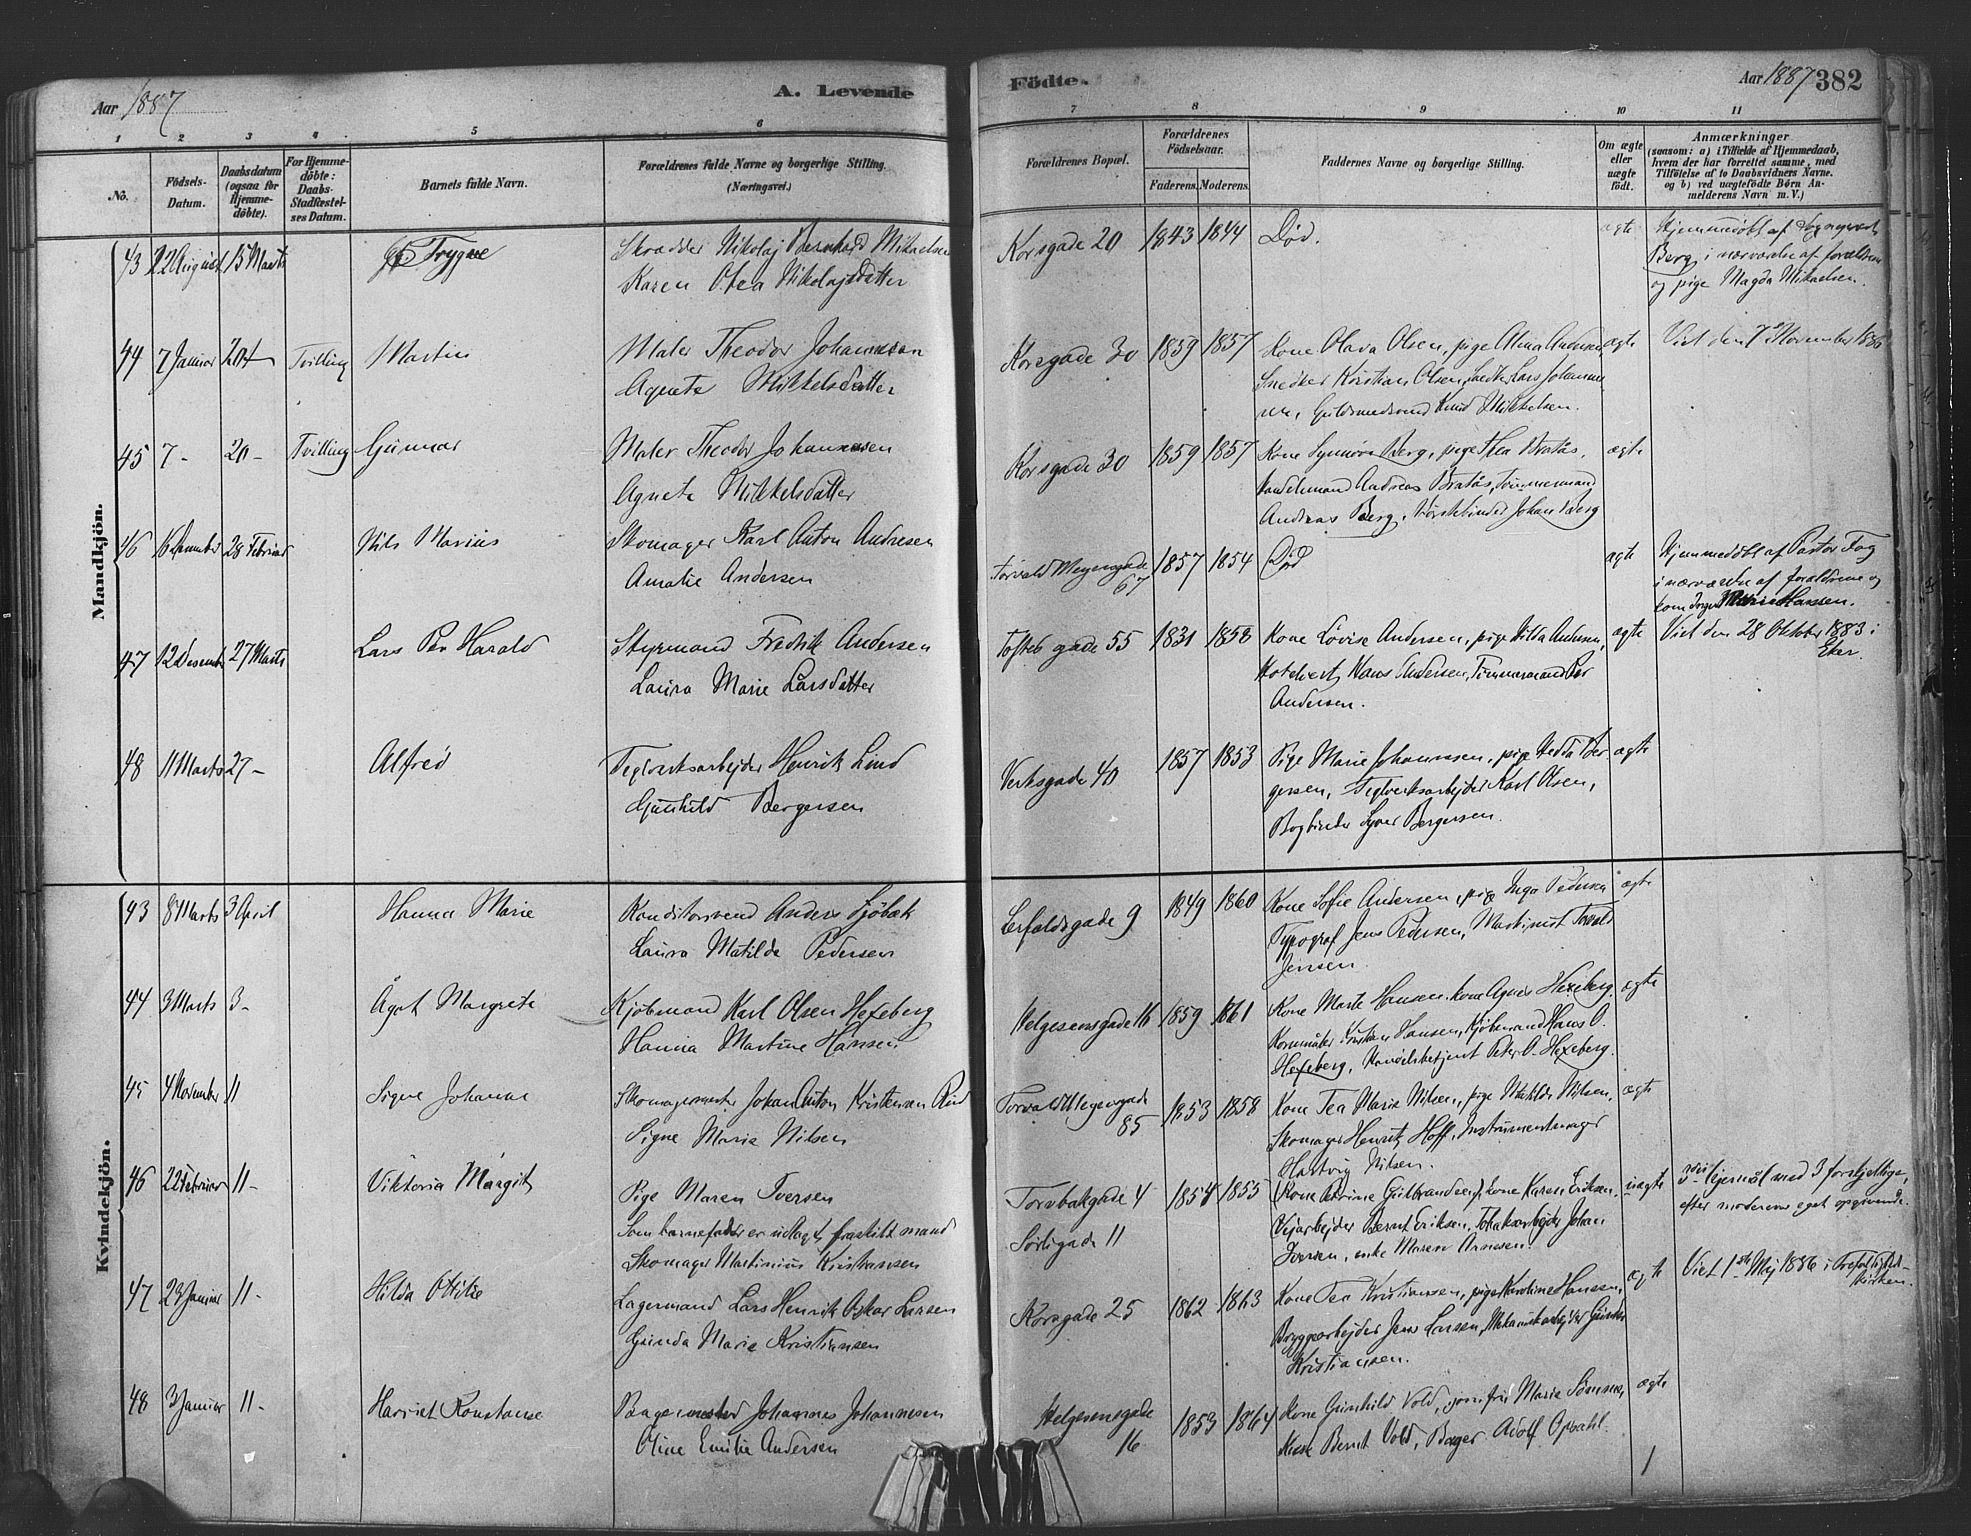 Aar 1887
A. Levende
Födte.
Aar 1887 382
1 2 3 4 5 6 7 8 9 10 11
No.
Födsels-Datum.
Daabsdatum (ogsaa for Hjemme-döbte).
For Hjemme-döbte: Daabs-Stadfæstel-ses Datum.
Barnets fulde Navn.
Forældrenes fulde Navne og borgerlige Stilling. (Næringsvei.)
Forældrenes Bopæl.
Forældrenes Födselsaar.
Faderens. Moderens.
Faddernes Navne og borgerlige Stilling.
Om ægte eller uægte födt.
Anmærkninger (saasom: a) i Tilfælde af Hjemmedaab, hvem der har forrettet samme, med Tilföielse af to Daabsvidners Navne. og b) ved uægtefödte Börn Anmelderens Navn m.V.)
Mandkjön.
43 22 August 15 Marts Trygve
Skrædder Nikolaj Bernhard Mikaelsen
Karen Olea Nikolajsdatter
Korsgade 20 1843 1844 Död. ægte
Hjemmedöbt af Sogneprest
Berg i nærværelse af forældrene
og pige Magda Mikaelsen.
44 7 Januar 20 Tvilling Martin
Maler Theodor Johannesen
Agnete Mikkelsdatter
Korsgade 30 1859 1857
Kone Olava Olsen, pige Alma Andersen,
Snedker Kristian Olsen, Lars Johanne
sen, Guldsmedsvend Knud Mikkelsen.
ægte
Viet den 7de November 1886
45 7 - 20 - Tvilling Gunnar
Maler Theodor Johannesen
Agnete Mikkelsdatter
Korsgade 30 1859 1857
Kone Synnöve Berg, pige Thea Bratås,
Handelsmand Andreas Bratås, Tömmermand
Andreas Berg, Börstebinder Johan Berg
ægte
46 16 Desember 28 Februar Nils Marius
Skomager Karl Anton Andresen
Amalie Andersen
Torvald Meyersgade
67
1857 1854 Död ægte
Hjemmedöbt af Pastor Fog
i nærværelse af forældrene og
Hansen.
47 12 Desember 27 Marts Lars Per Harald
Styrmand Fredrik Andersen
Laura Marie Larsdatter
Toftesgade 55 1831 1858
Kone Lovise Andersen, pige Hilda Andersen,
Hotelvert Hans Andersen, Tömmermand Per
Andersen.
ægte
Viet den 28 Oktober 1883 i
Eker.
48 11 Marts 27 - Alfred
Teglverksarbejder Henrik Lind
Gunhild Bergersen
Verksgade 40 1857 1853
Pige Marie Johannesen, pige Hedda Ber
gersen, Teglverksarbejder Karl Olsen,
Bogbinder Syver Bergersen.
ægte
Kvindekjön.
43 8 Marts 3 April Hanna Marie
Konditorsvend Anders Sjöbæk
Laura Matilde Pedersen
Lerfaldsgade 9 1849 1860
Kone Sofie Andersen, pige Inga Pedersen
Typograf Jens Pedersen, Maskinist Torvald
Jensen.
ægte
44 3 Marts 3 - Ågot Margrete
Kjöbmand Karl Olsen Hexeberg
Hanna Martine Hansen
Helgesensgade 16 1859 1861
Kone Marte Hansen, kone Agnes Hexeberg,
Kornmåler Kristian Hansen, Kjöbmand Hans O.
Hexeberg, Handelsbetjent Peter O. Hexeberg.
ægte
45 4 November 11 Signe Johanne
Skomagermester Johan Anton Kristensen Rud
Signe Marie Nilsen
Torvald Meyersgade
85
1853 1858
Kone Tea Marie Nilsen, pige Matilde Nilsen,
Skomager Henrik Hoff, Instrumentmager
Hartvig Nilsen.
ægte
46 22 Februar 11 - Viktoria Margit
Pige Maren Iversen
Som barnefader er udlagt fraskilt mand
Skomager Martinius Kristiansen
Torvbakgade 4
Sörligade 11
1854 1855
(Kone Petrine Gulbrandsen), kone Karen Eriksen,
Vejarbejder Bernt Eriksen, Tobaksarbejder Johan
Iversen, enke Maren Arnesen.
uægte
3die lejermål med 3 forskjellige,
efter moderens eget opgivende.
47 23 Januar 11 - Hilda Otilie
Lagermand Lars Henrik Oskar Larsen
Gunda Marie Kristiansen
Korsgade 25 1862 1863
Kone Tea Kristiansen, pige Karoline Hansen,
Bryggearbejder Jens Larsen, Mekanikarbejder Gunder
Kristiansen.
ægte
Viet 1ste Maj 1886 i Trefoldigheds-
kirken.
48 3 Januar 11 - Harriet Konstanse
Bagermester Johannes Johannesen
Oline Emilie Andersen
Helgesensgade
16
1853 1864
Kone Gunhild Vold, jomfru Marie Sörensen,
Bernt Vold, Bager Adolf Opdahl.
ægte